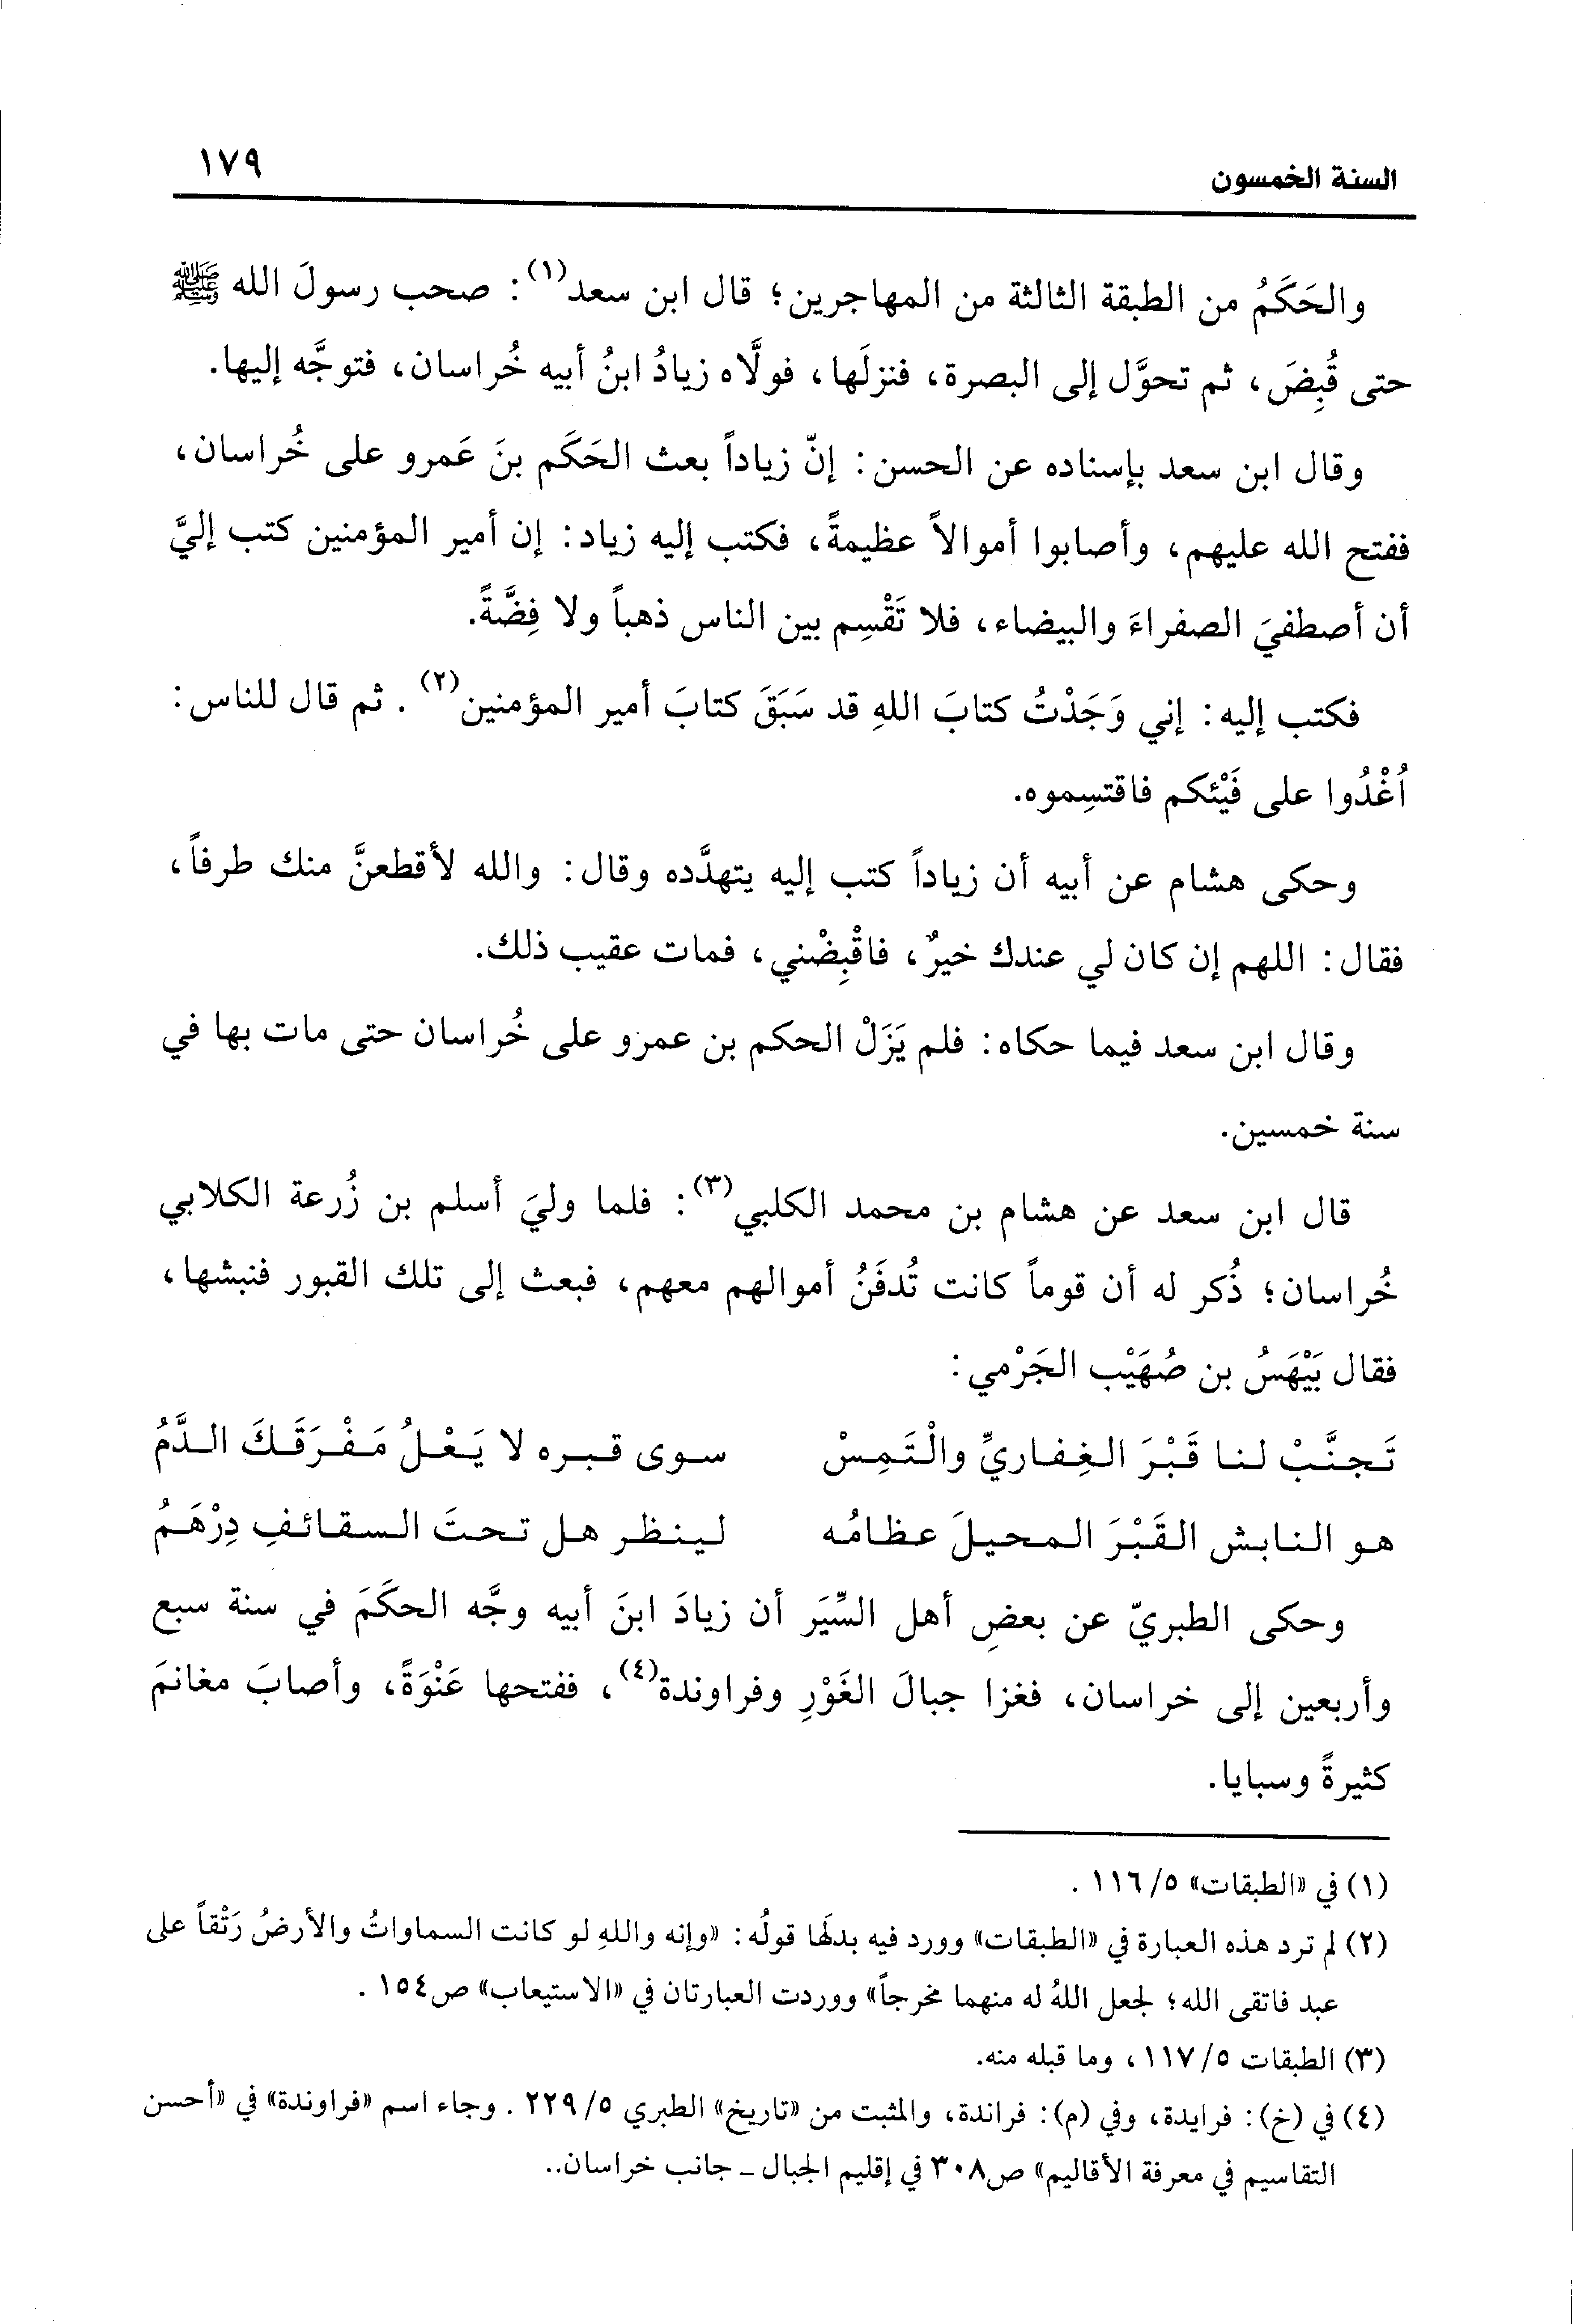 السنة الخمسون ١٧٩
والحَكَمُ من الطبقة الثالثة من المهاجرين؛ قال ابن سعد(١): صحب رسولَ الله ﷺ
حتى قُبِضَ، ثم تحوَّل إلى البصرة، فنزلَها، فولَّاه زيادُ ابنُ أبيه خُراسان، فتوجَّه إليها.
وقال ابن سعد بإسناده عن الحسن: إنّ زياداً بعث الحَكَم بنَ عَمرو على خُراسان،
ففتح الله عليهم، وأصابوا أموالاً عظيمةً، فكتب إليه زياد: إن أمير المؤمنين كتب إليَّ
أن أصطفيَ الصفراءَ والبيضاء، فلا تَقْسِم بين الناس ذهباً ولا فِضَّةً.
فكتب إليه: إني وَجَدْتُ كتابَ اللهِ قد سَبَقَ كتابَ أمير المؤمنين(٢). ثم قال للناس:
اُغْدُوا على فَيْئكم فاقتسِموه.
وحكى هشام عن أبيه أن زياداً كتب إليه يتهدَّده وقال: والله لأقطعنَّ منك طرفاً،
فقال: اللهم إن كان لي عندك خيرٌ، فاقْبِضْني، فمات عقيب ذلك.
وقال ابن سعد فيما حكاه: فلم يَزَلْ الحكم بن عمرو على خُراسان حتى مات بها في
سنة خمسين.
قال ابن سعد عن هشام بن محمد الكلبي(٣): فلما وليَ أسلم بن زُرعة الكلابي
خُراسان؛ ذُكر له أن قوماً كانت تُدفَنُ أموالهم معهم، فبعث إلى تلك القبور فنبشها،
فقال بَيْهَسُ بن صُهَيْب الجَرْمي:
تَجنَّبْ لنا قَبْرَ الغِفاريِّ والْتَمِسْ سوى قبره لا يَعْلُ مَفْرَقَكَ الدَّمُ
هو النابش القَبْرَ المحيلَ عظامُه لينظر هل تحتَ السقائفِ دِرْهَمُ
وحكى الطبريّ عن بعضِ أهل السِّيَر أن زيادَ ابنَ أبيه وجَّه الحكَمَ في سنة سبع
وأربعين إلى خراسان، فغزا جبالَ الغَوْرِ وفراوندة(٤)، ففتحها عَنْوَةً، وأصابَ مغانمَ
كثيرةً وسبايا.
(١) في «الطبقات» ٥/ ١١٦.
(٢) لم ترد هذه العبارة في «الطبقات» وورد فيه بدلَها قولُه: «وإنه واللهِ لو كانت السماواتُ والأرضُ رَتْقاً على
عبد فاتقى الله؛ لجعل اللهُ له منهما مخرجاً» ووردت العبارتان في «الاستيعاب» ص١٥٤.
(٣) الطبقات ٥/ ١١٧، وما قبله منه.
(٤) في (خ): فرايدة، وفي (م): فراندة، والمثبت من «تاريخ» الطبري ٥/ ٢٢٩. وجاء اسم «فراوندة» في «أحسن
التقاسيم في معرفة الأقاليم» ص٣٠٨ في إقليم الجبال ـ جانب خراسان..